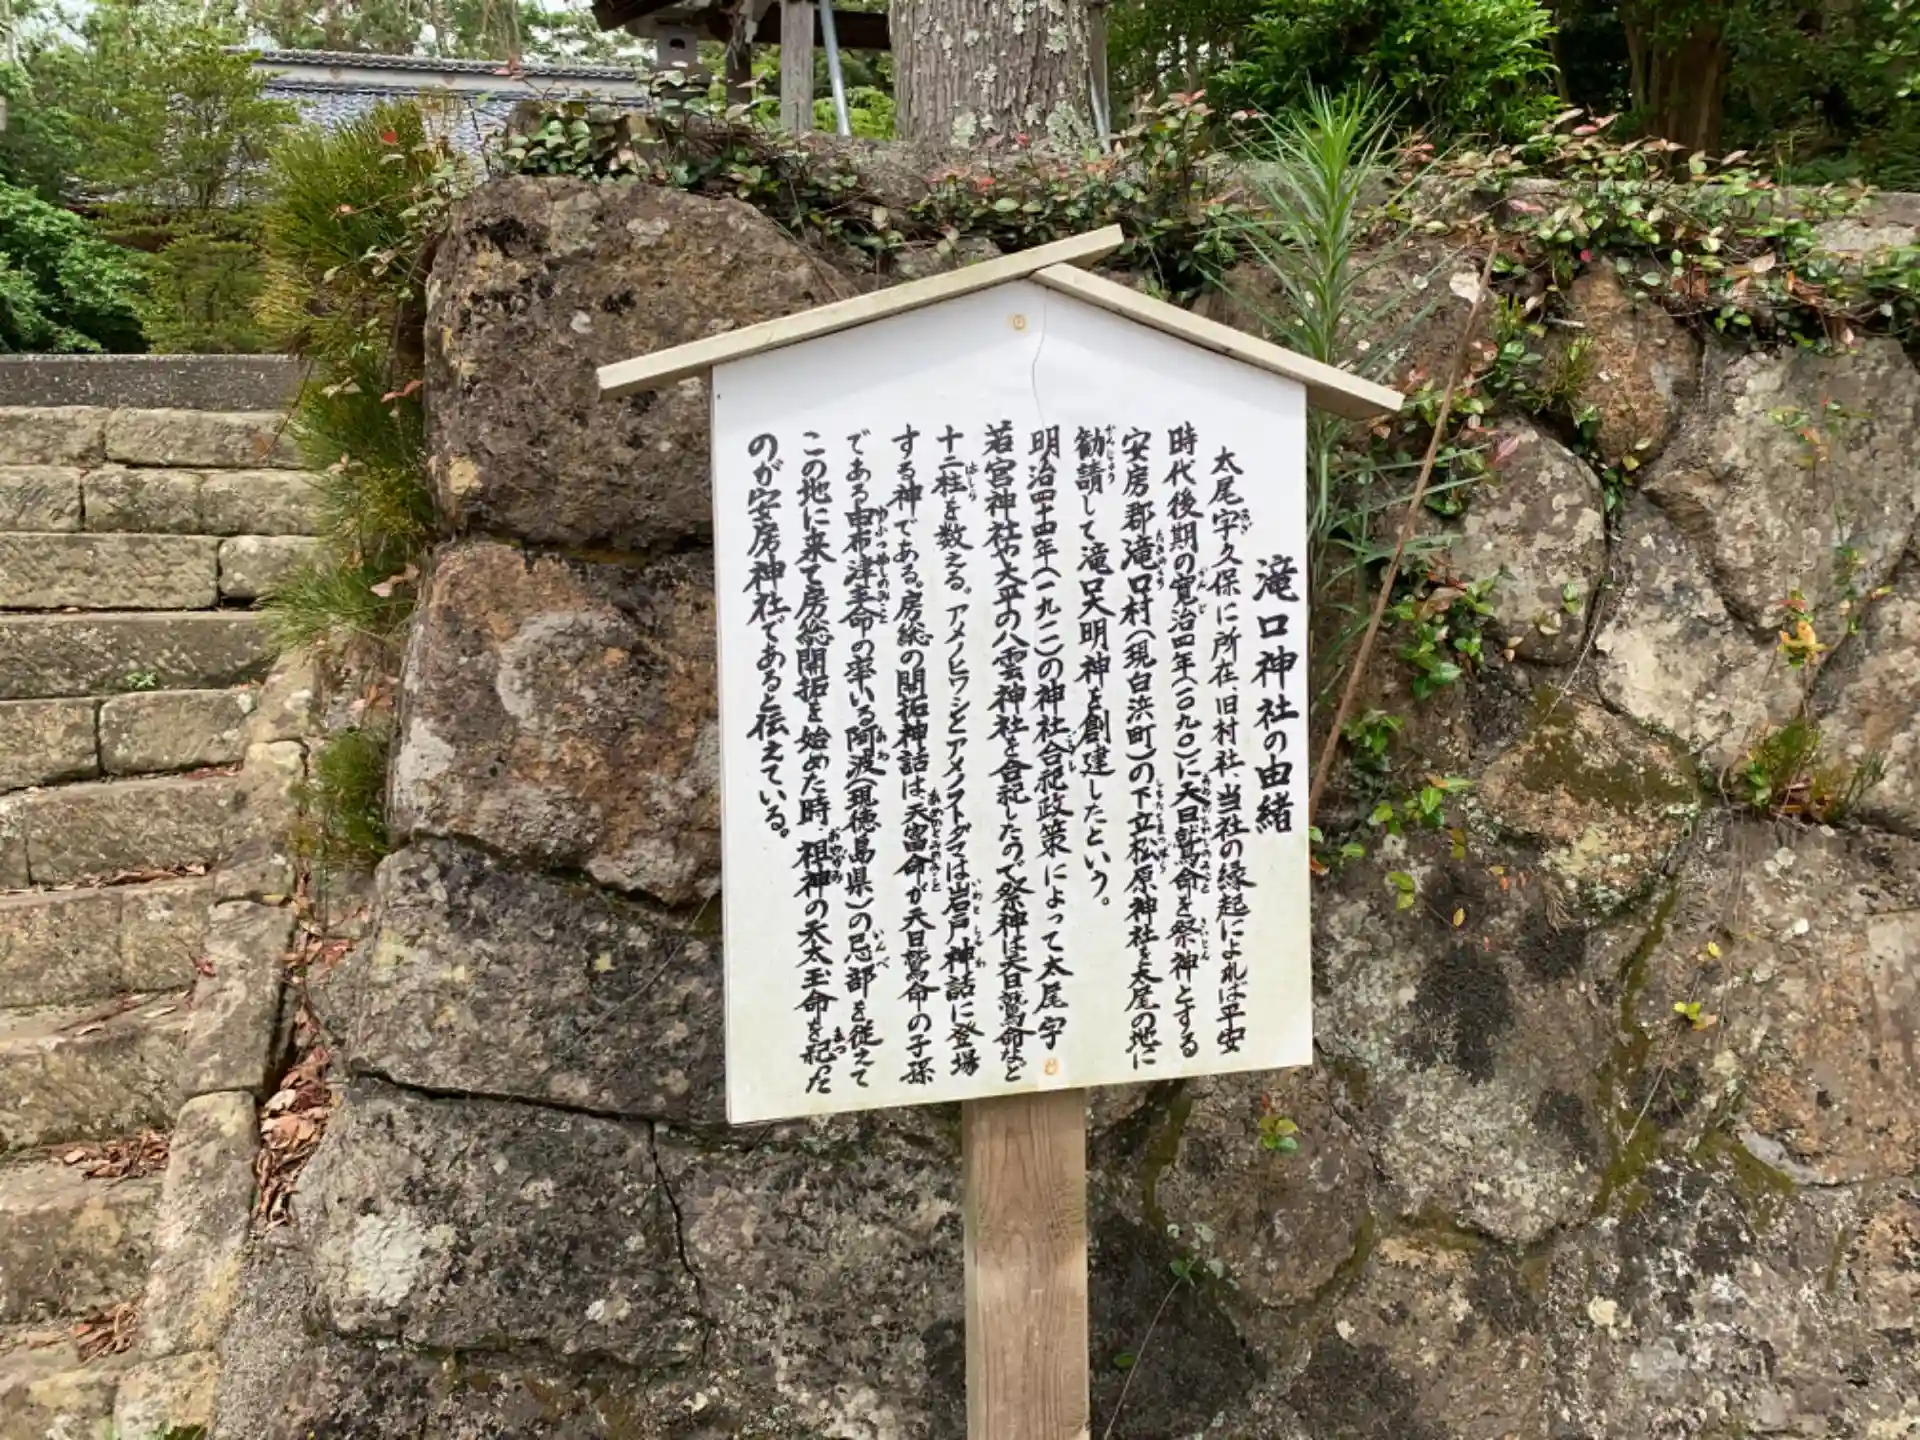 滝口神社の由緒
太尾字久保に所在、旧村社、当社の縁起によれば平安
時代後期の寛治四年(一〇九〇)に天日鷲命を祭神とする
安房郡滝口村(現白浜町)の下立松原神社を大尾の地に
勧請して滝口大明神を創建したという。
明治四十四年(一九一一)の神社合祀政策によって太尾字
若宮神社や大平の八雲神社を合祀したので祭神は天日鷲命など
十二柱を数える。アメノヒワシとアメノフトダマは岩戸神話に登場
する神である。房総の開拓神話は天富命が天日鷲命の子孫
である由布津主命の率いる阿波(現徳島県)の忌部を従えて
この地に来て房総開拓を始めた時、祖神の天太玉命を祀った
のが安房神社であると伝えている。